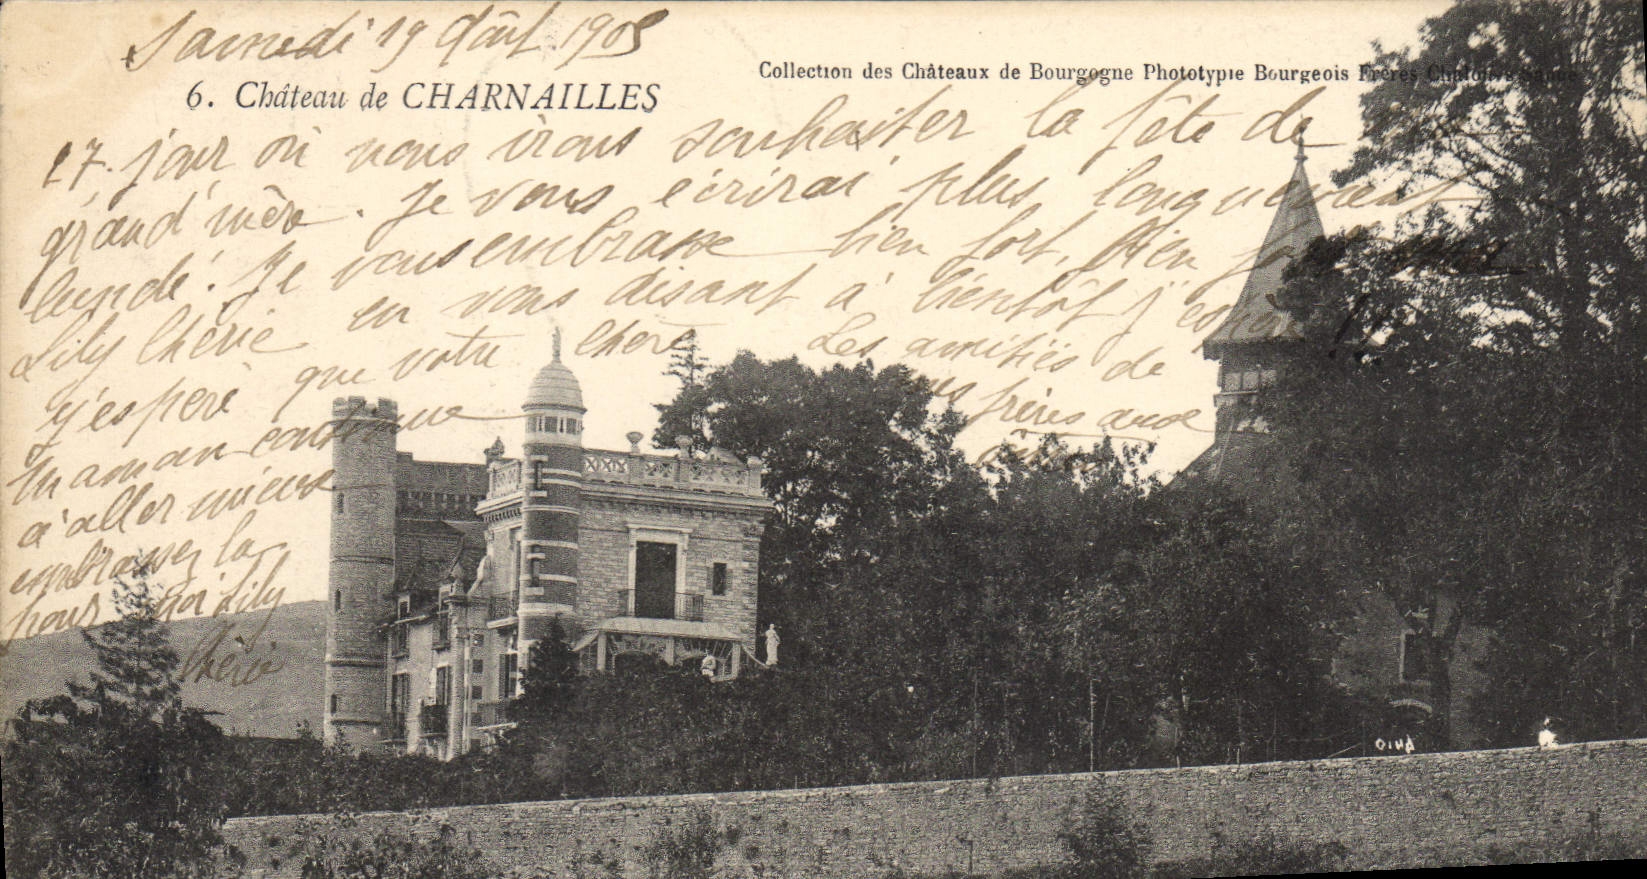 Samedi 19 Août 1905
Collection des Châteaux de Bourgogne Phototypie Bourgeois Frères Chalon s/ Saône
6. Château de CHARNAILLES
27. jour où nous irons souhaiter la fête de
grand'mère. Je vous écrirai plus longuement
lundi. Je vous embrasse bien fort. Bien
Lily Chérie en vous disant à bientôt j'
j'espère que votre chère
maman continue
à aller mieux
embrassez la
pour moi Lily
Chérie
Les amitiés de
frères aux